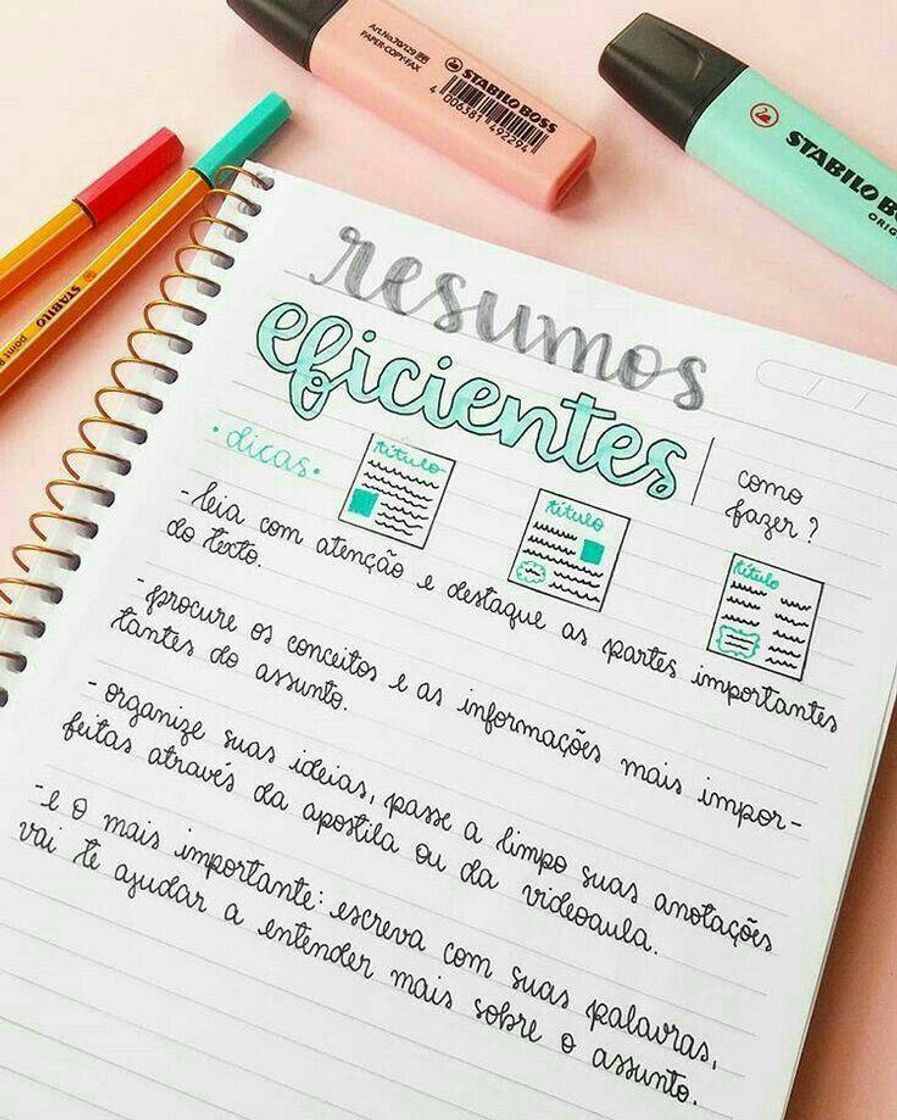 Art.No.70/129
PAPER-COPY-FAX
STABILO BOSS
4 006381 492294
STABILO BO
ORIG
STABILO
point
resumos
eficientes
como
fazer?
• dicas •
título
título
título
-leia com atenção e destaque as partes importantes
do texto.
-procure os conceitos e as informações mais impor-
tantes do assunto.
- organize suas ideias, passe a limpo suas anotações
feitas através da apostila ou da videoaula.
-e o mais importante: escreva com suas palavras,
vai te ajudar a entender mais sobre o assunto.